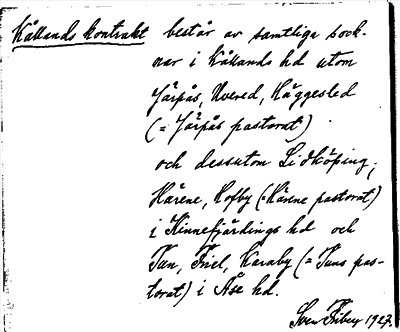 Kållands kontrakt består av samtliga sock-
nar i Kållands hd utom
Järpås, Uvered, Häggesled
(= Järpås pastorat)
och dessutom Lidköping,
Härene, Hofby (= Härene pastorat)
i Kinnefjärdings hd och
Tun, Friel, Karaby (= Tuns pas-
torat) i Åse hd.
Sven Friberg 1927.